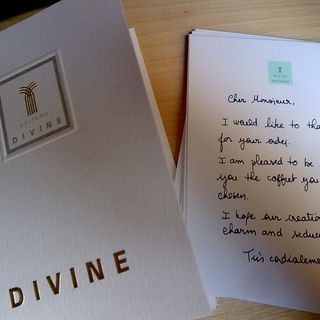 parfums
DIVINE
DIVINE
Cher Monsieur,
I would like to tha
for your order.
I am pleased to be
you the coffret you
chosen.
I hope our creatio
charm and seduc
Très cordialeme